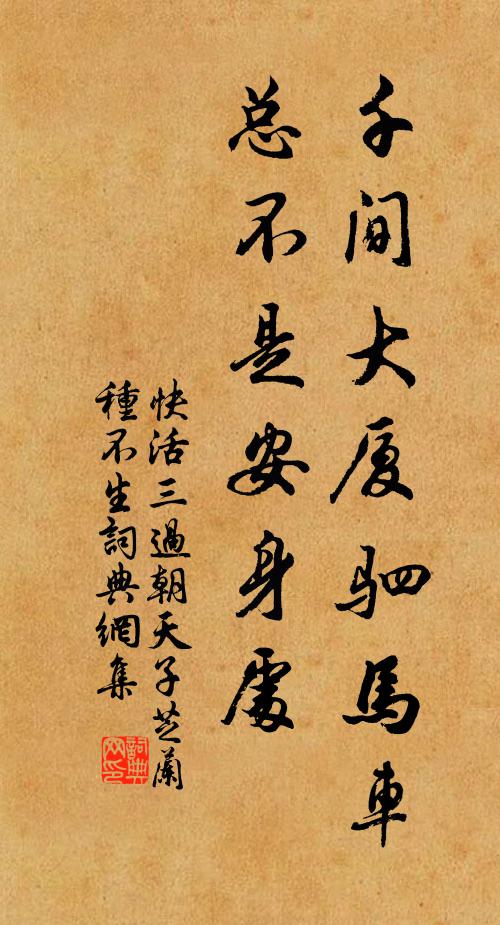 千间大厦驷馬車
总不是安身處
快活三過朝天子芝蘭
種不生詞典網集
詞典
网印